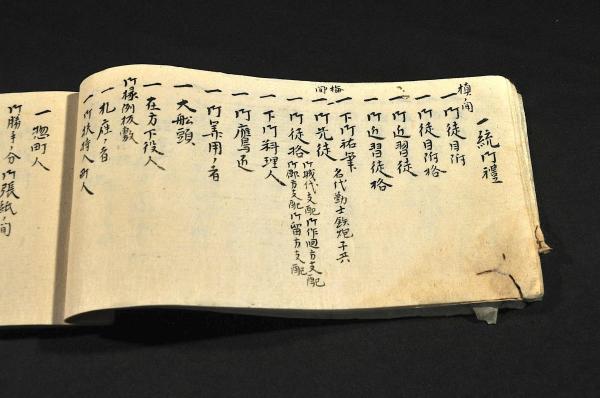 一統御禮
槙ノ間
一御徒目附
一御徒目附格
一御近習徒
一御近習徒格
梅間
一下御祐筆 名代勤士鉄炮子共
一御先徒 御城代支配御作廻方支配
一御徒格 御郡方支配御留方支配
一下御料理人
一御鷹匠
一御算用ノ者
一大船頭
一在方下役人
御禄例抜敷
一札座ノ者
一御扶持人町人
一惣町人
御勝手ノ分御張紙ノ間